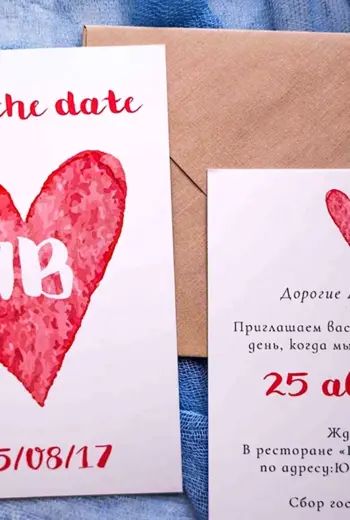 the date
В
5/08/17
Дорогие
Приглашаем вас
день, когда мы
25 ав
Жд
В ресторане «
по адресу:Ю
Сбор гос